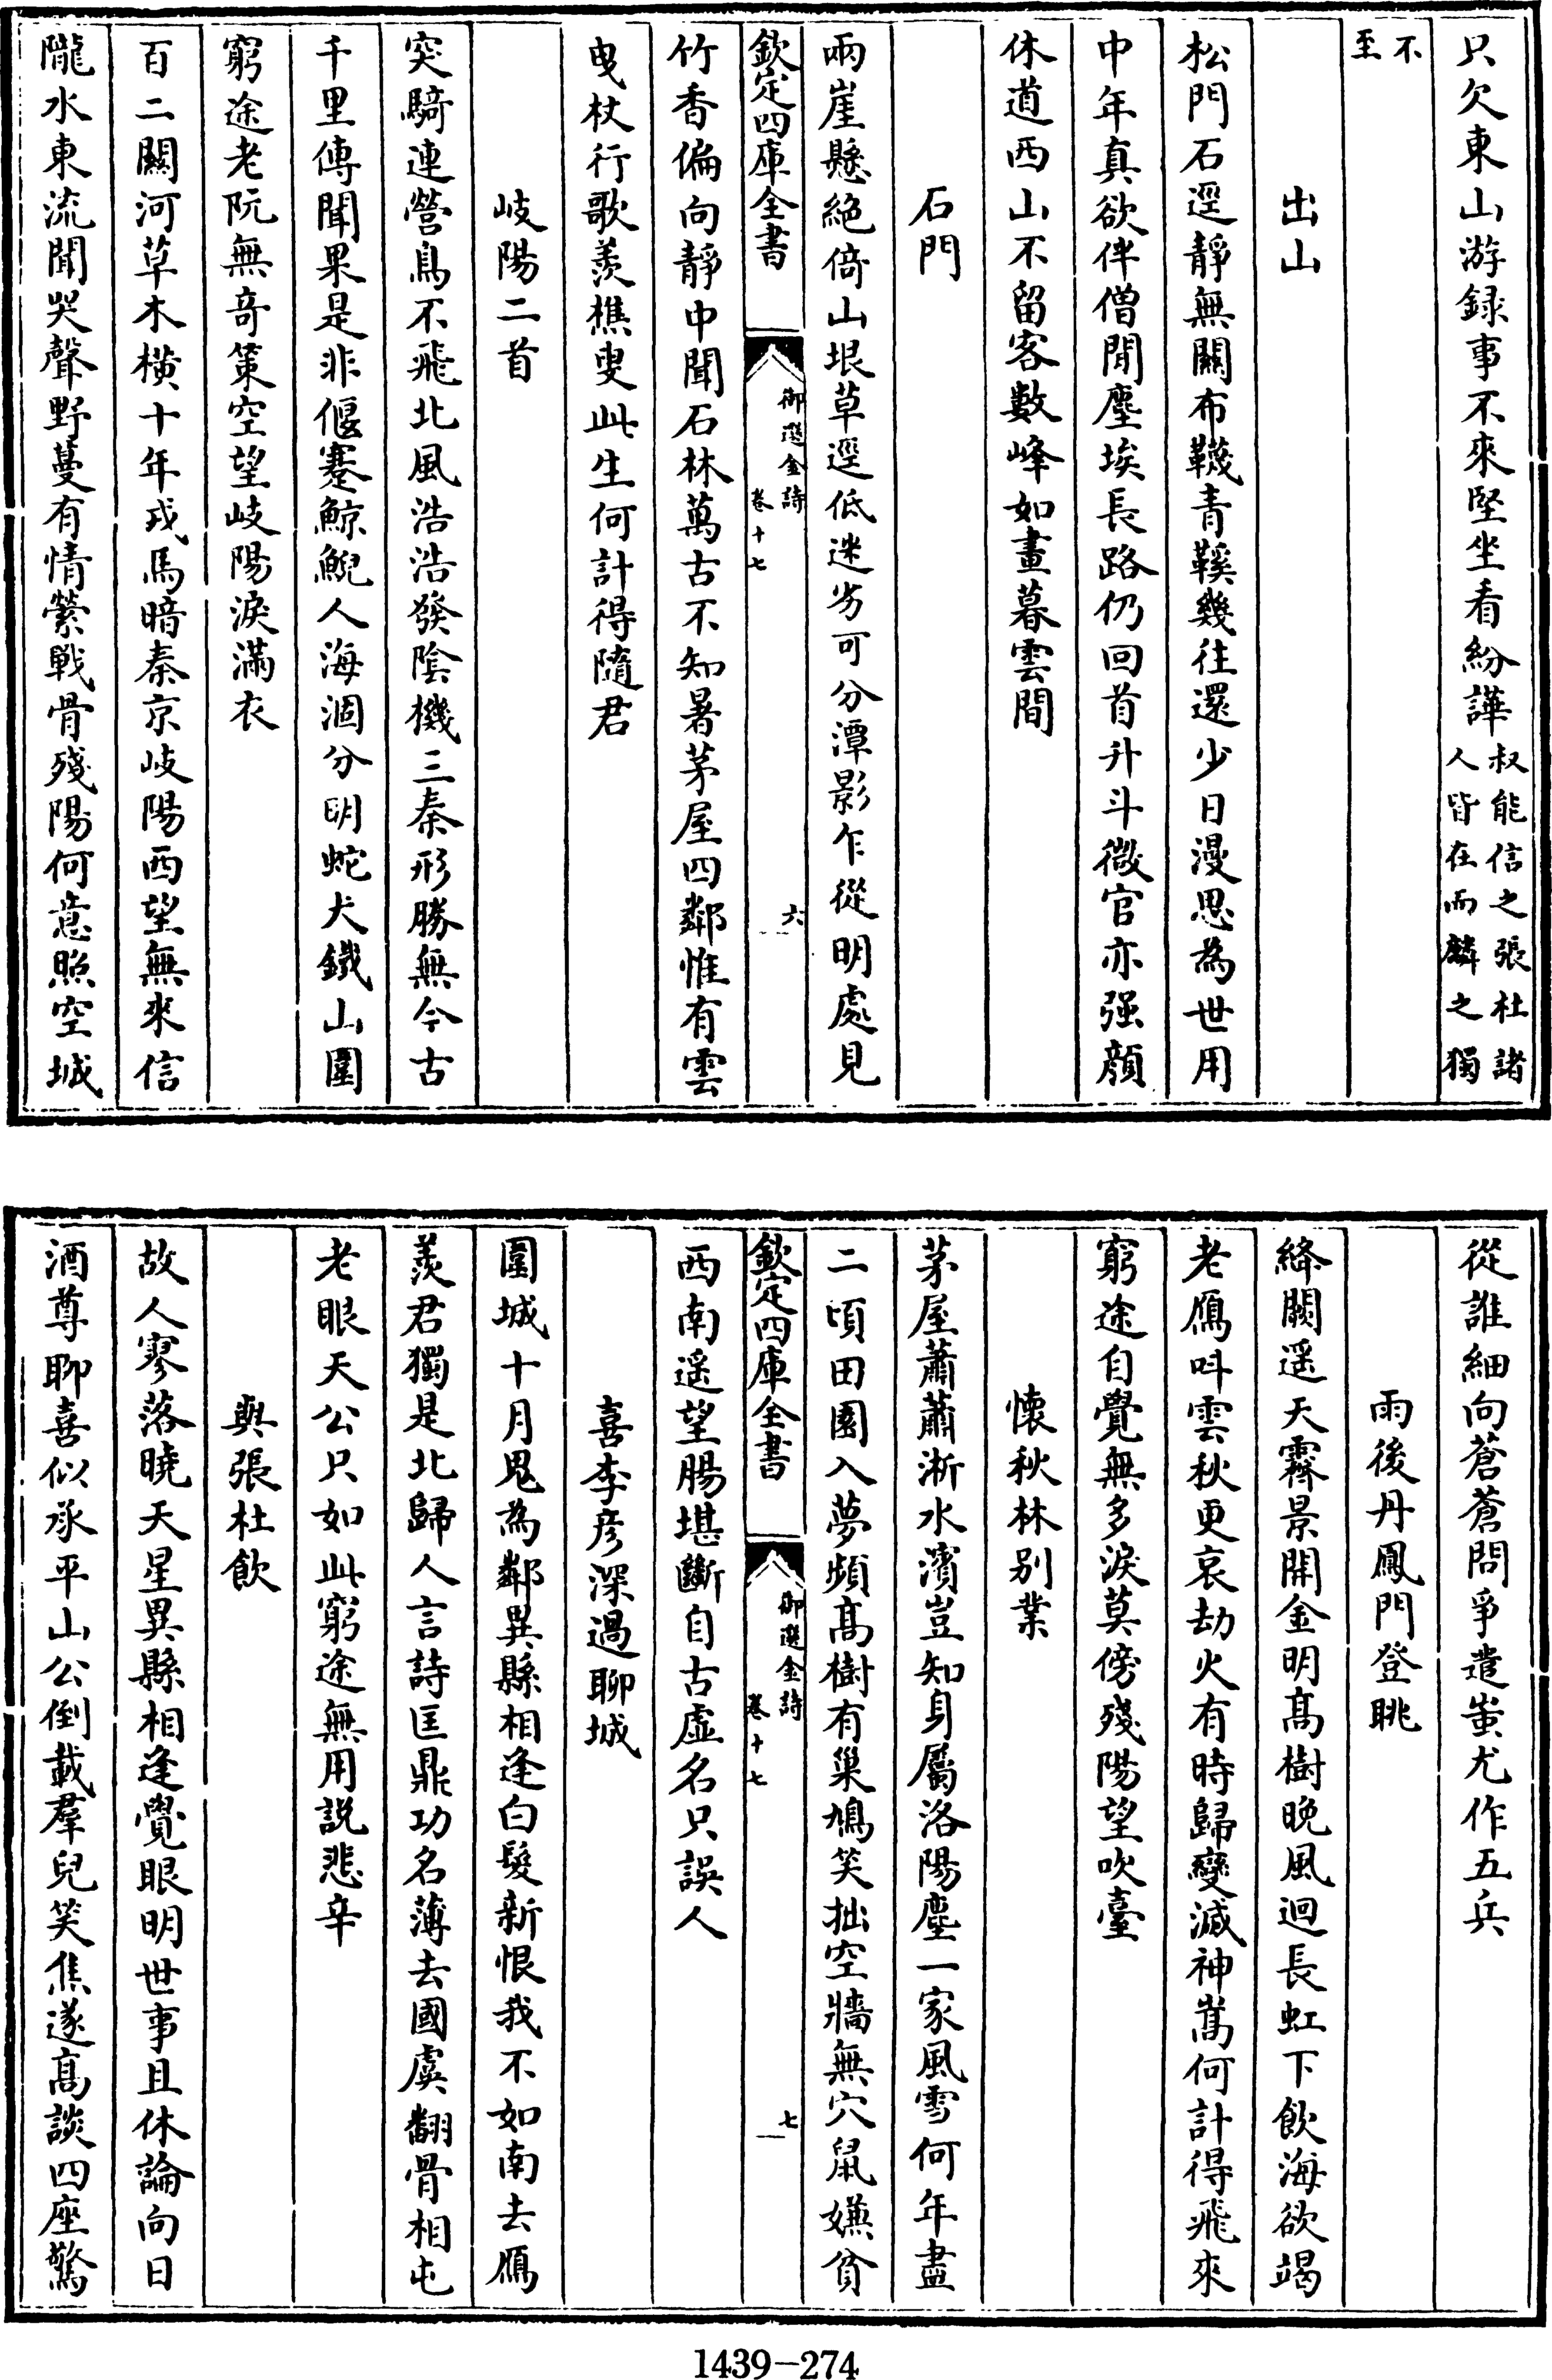 只欠東山游録事不來堅坐看紛譁叔能信之張杜諸人皆在而麟之獨
不至
出山
松門石逕靜無關布韈青鞵幾往還少日漫思為世用
中年真欲伴僧閒塵埃長路仍回首升斗微官亦强顔
休道西山不留客數峰如畫暮雲間
石門
兩崖懸絶倚山垠草逕低迷劣可分潭影乍從明處見
欽定四庫全書
御選金詩
卷十七
六
竹香偏向靜中聞石林萬古不知暑茅屋四鄰惟有雲
曳杖行歌羨樵叟此生何計得隨君
岐陽二首
突騎連營鳥不飛北風浩浩發隂機三秦形勝無今古
千里傳聞果是非偃蹇鯨鯢人海涸分明蛇犬鐵山圍
窮途老阮無竒策空望岐陽淚滿衣
百二關河草木橫十年戎馬暗秦京岐陽西望無來信
隴水東流聞哭聲野蔓有情縈戰骨殘陽何意照空城
從誰細向蒼蒼問爭遣蚩尤作五兵
雨後丹鳳門登眺
絳闕遥天霽景開金明髙樹晚風迴長虹下飲海欲竭
老鴈呌雲秋更哀劫火有時歸變滅神嵩何計得飛來
窮途自覺無多淚莫傍殘陽望吹臺
懐秋林别業
茅屋蕭蕭淅水濱豈知身屬洛陽塵一家風雪何年盡
二頃田園入夢頻髙樹有巢鳩笑拙空牆無穴鼠嫌貧
欽定四庫全書
御選金詩
卷十七
七
西南遥望腸堪斷自古虚名只誤人
喜李彦深過聊城
圍城十月鬼為鄰異縣相逢白髮新恨我不如南去鴈
羨君獨是北歸人言詩匡鼎功名薄去國虞翻骨相屯
老眼天公只如此窮途無用説悲辛
與張杜飲
故人寥落曉天星異縣相逢覺眼明世事且休論向日
酒尊聊喜似承平山公倒載羣兒笑焦遂髙談四座驚
1439-274